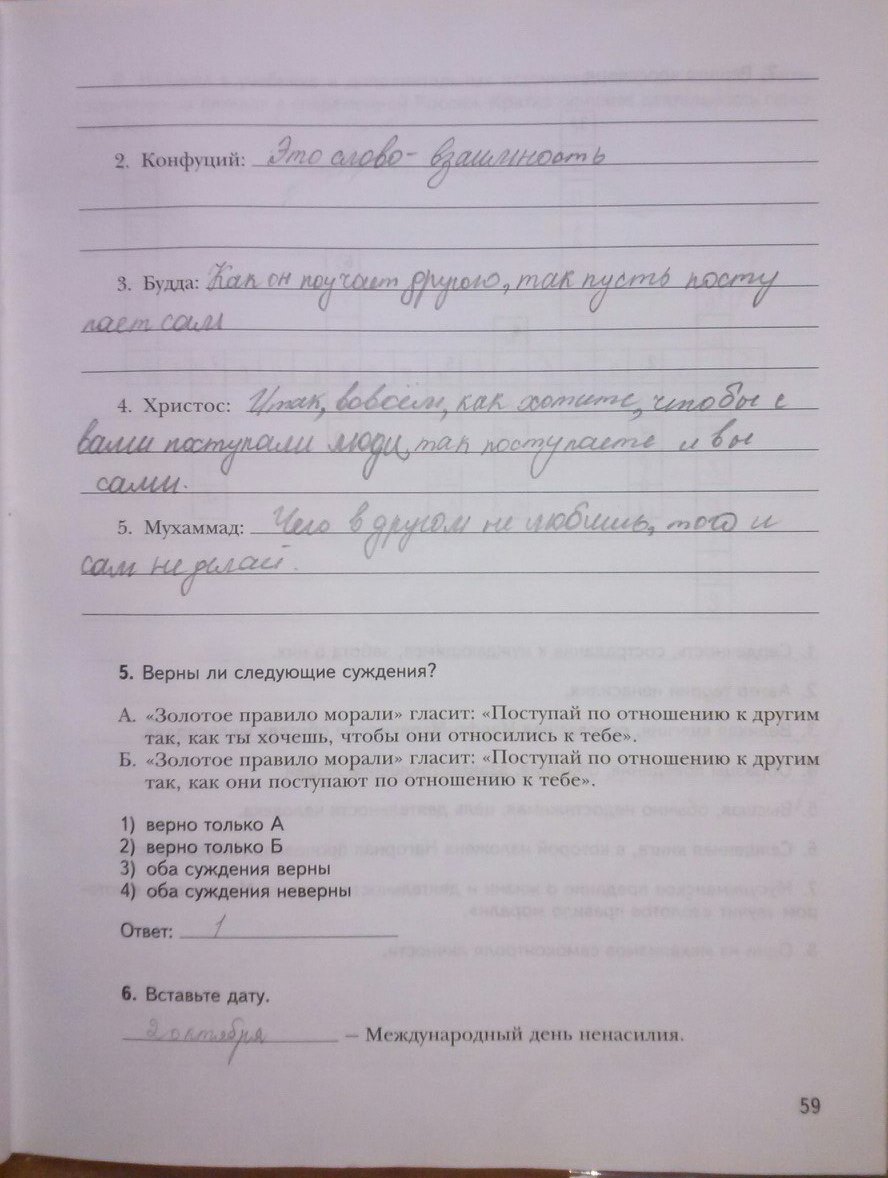 2. Конфуций: Это слово - взаимность
3. Будда: Как он поучает другого, так пусть посту
пает сам
4. Христос: Итак, во всём, как хотите, чтобы с
вами поступали люди, так поступаете и вы
сами.
5. Мухаммад: Чего в другом не любишь, того и
сам не делай.
5. Верны ли следующие суждения?
А. «Золотое правило морали» гласит: «Поступай по отношению к другим
так, как ты хочешь, чтобы они относились к тебе».
Б. «Золотое правило морали» гласит: «Поступай по отношению к другим
так, как они поступают по отношению к тебе».
1) верно только А
2) верно только Б
3) оба суждения верны
4) оба суждения неверны
Ответ: 1
6. Вставьте дату.
2 октября — Международный день ненасилия.
59